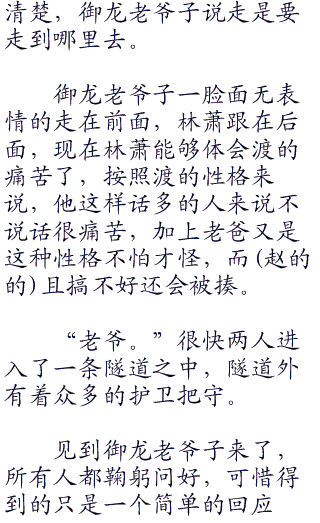 清楚，御龙老爷子说走是要
走到哪里去。
御龙老爷子一脸面无表
情的走在前面，林萧跟在后
面，现在林萧能够体会渡的
痛苦了，按照渡的性格来
说，他这样话多的人来说不
说话很痛苦，加上老爸又是
这种性格不怕才怪，而(赵的
的)且搞不好还会被揍。
“老爷。”很快两人进
入了一条隧道之中，隧道外
有着众多的护卫把守。
见到御龙老爷子来了，
所有人都鞠躬问好，可惜得
到的只是一个简单的回应